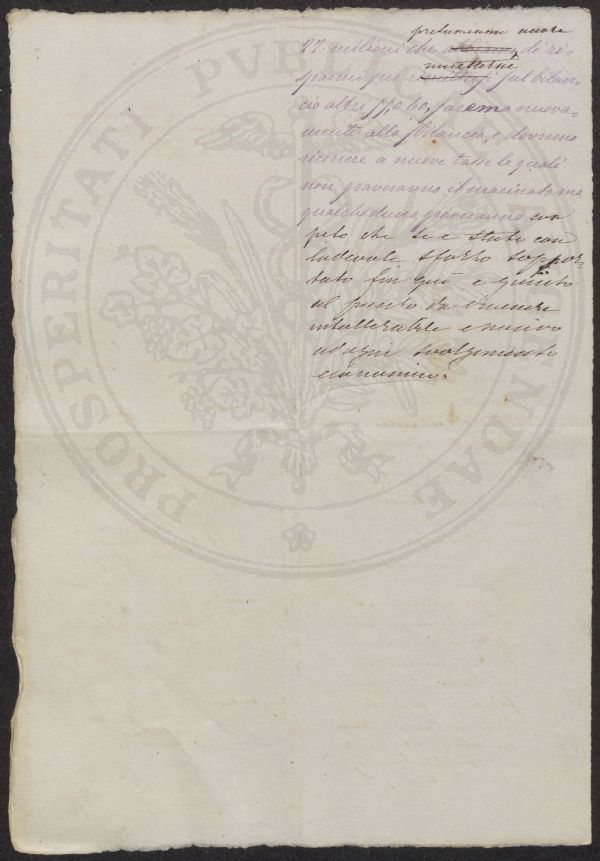 presumiamo avere
22 milioni che abbiamo, di ri-
sparmi per
sul bilan-
cio altri 50, o 60, saremo nuova-
mente allo sbilancio, e dovremo
ricorrere a nuove tasse le quali
non graveranno il macinato ma
qualchedun graveranno con
peso che se è stato con
lodevole sforzo soppor-
tato fin qui è giunto
al punto da divenire
intollerabile e nocivo
ad ogni svolgimento
economico.
PROSPERITATI PUBLICAE AUGENDAE